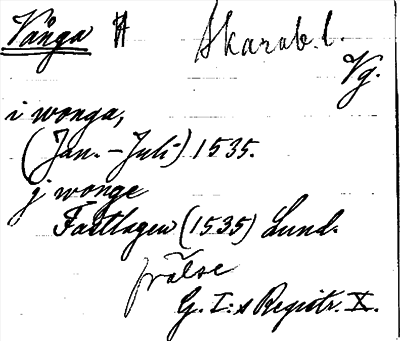 Vånga H Skarab. l.
Vg.
i wonga,
(Jan. - Juli) 1535.
j wonge
Fastlagen (1535) Lund.
frälse
G. I:s Registr. X.